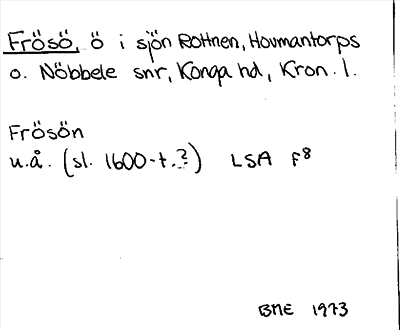 Frösö, ö i sjön Rottnen, Hovmantorps
o. Nöbbele snr, Konga hd, Kron. l.
Frösön
u.å. (sl. 1600-t.?) LSA F8
BME 1973